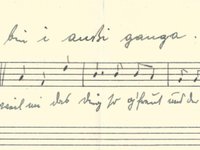 bin i außi ganga.
weil mi das Ding so g'freut und der